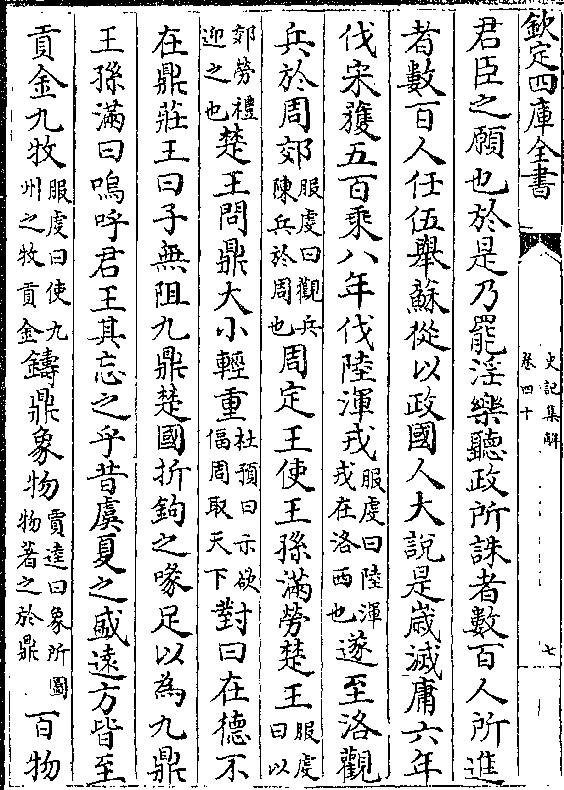 欽定四庫全書
史記集解
卷四十
七
君臣之願也於是乃罷淫樂聽政所誅者數百人所進
者數百人任伍舉蘇從以政國人大說是歲滅庸六年
伐宋獲五百乘八年伐陸渾戎服虔曰陸渾戎在洛西也遂至洛觀
兵於周郊服虔曰觀兵陳兵於周也周定王使王孫滿勞楚王服虔曰以
郊勞禮迎之也楚王問鼎大小輕重杜預曰示欲偪周取天下對曰在德不
在鼎莊王曰子無阻九鼎楚國折鉤之喙足以為九鼎
王孫滿曰嗚呼君王其忘之乎昔虞夏之盛遠方皆至
貢金九牧服虔曰使九州之牧貢金鑄鼎象物賈逵曰象所圖物著之於鼎百物